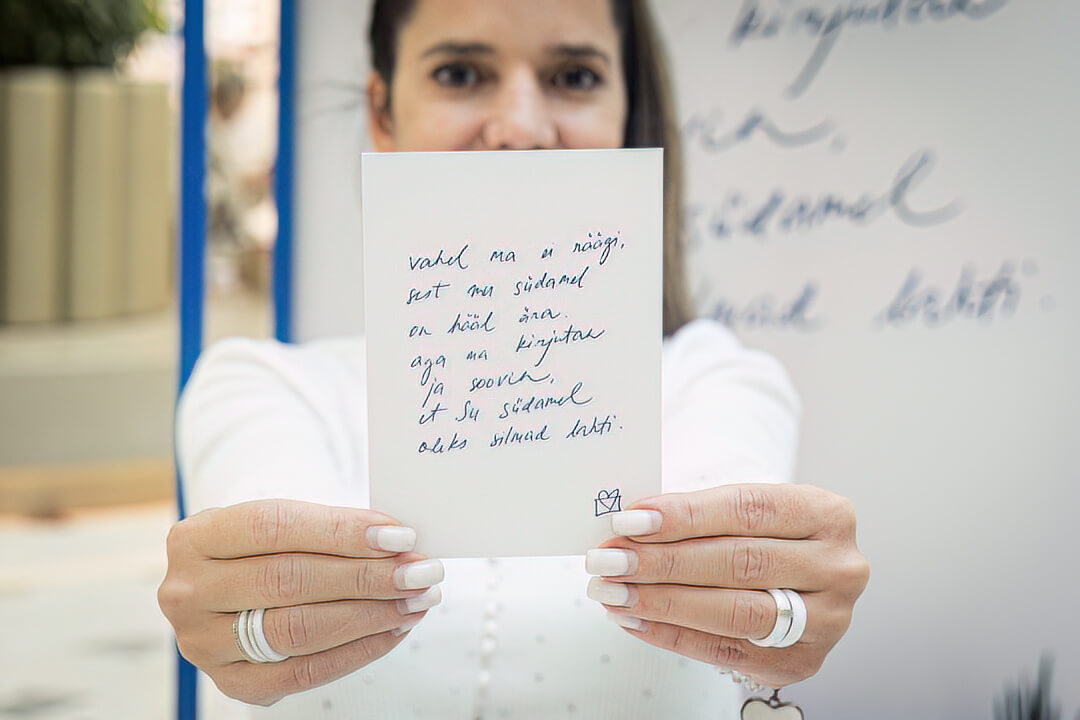 vahel ma ei räägi,
sest mu südamel
on hääl ära.
aga ma kirjutan
ja soovin,
et Su südamel
oleks silmad lahti.
kirjutan
südamel
lahti.